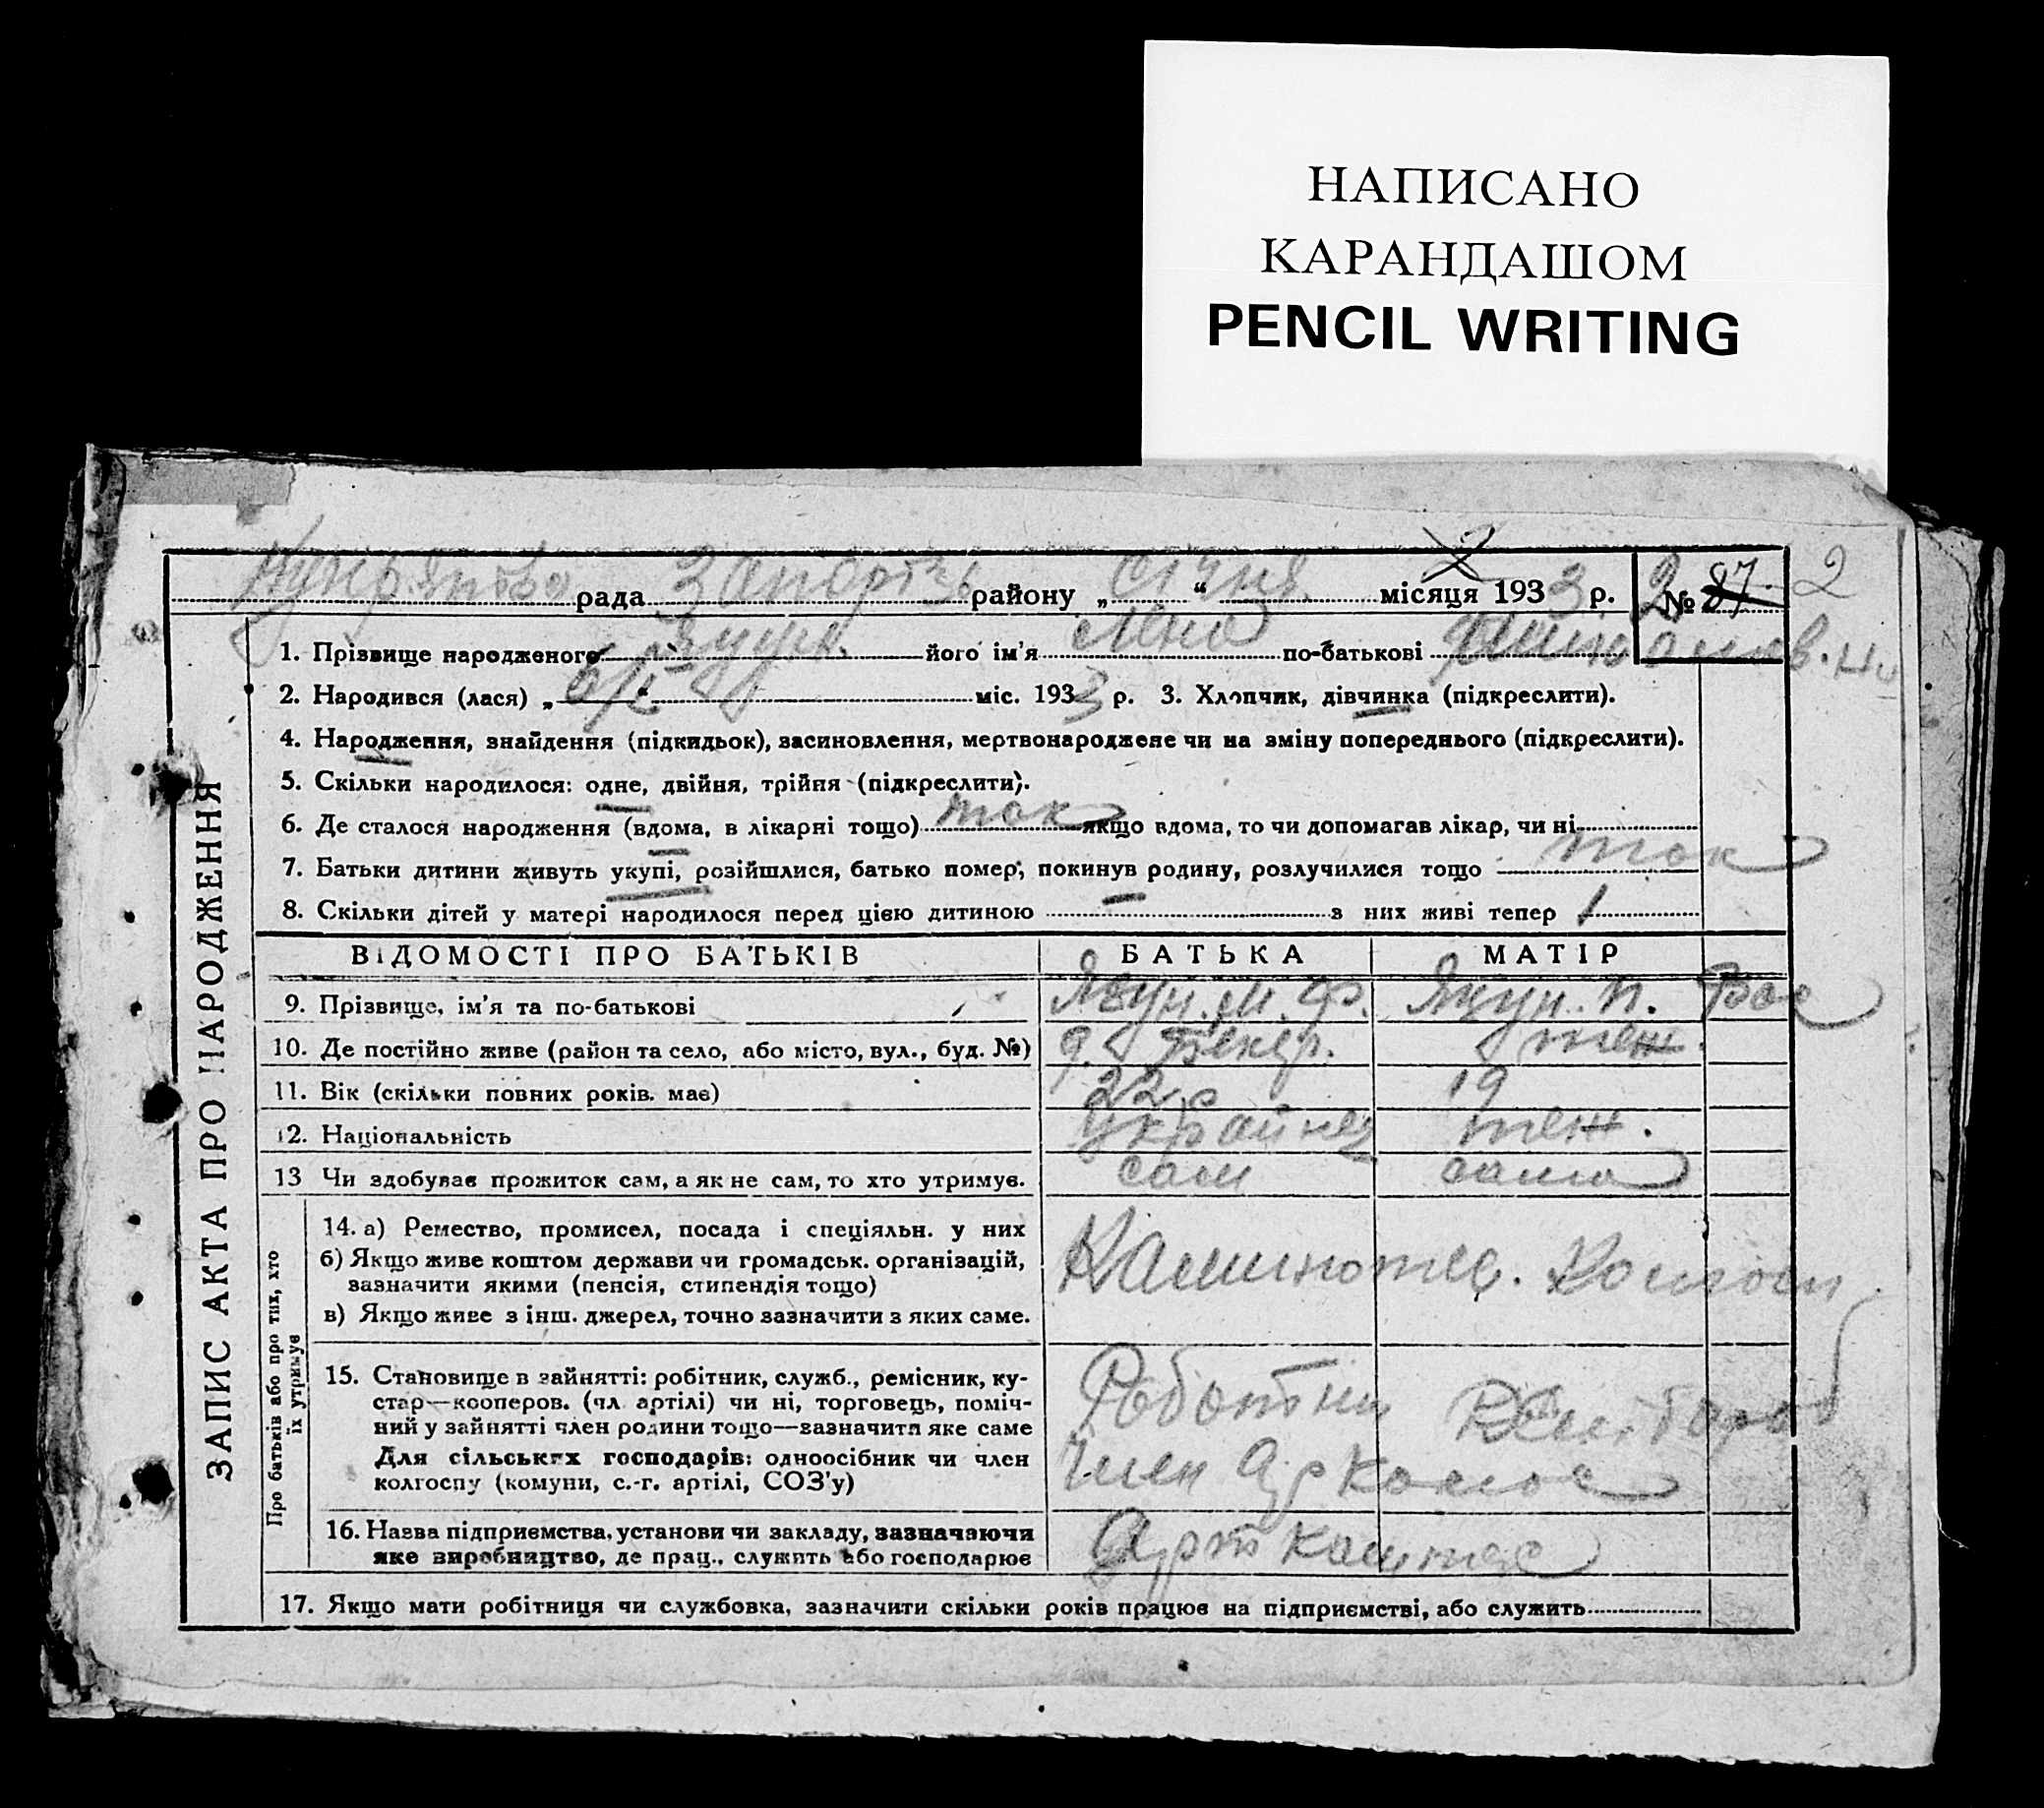 НАПИСАНО
КАРАНДАШОМ
PENCIL WRITING
рада Запорізь району „ січня “ місяця 1933 р. 2 № 87. 2
1. Прізвище народженого Якун. його ім'я по-батькові
2. Народився (лася) „ 6/I “ міс. 1933 р. 3. Хлопчик, дівчинка (підкреслити).
4. Народження, знайдення (підкидьок), засиновлення, мертвонароджене чи на зміну попереднього (підкреслити).
5. Скільки народилося: одне, двійня, трійня (підкреслити).
6. Де сталося народження (вдома, в лікарні тощо) так якщо вдома, то чи допомагав лікар, чи ні
7. Батьки дитини живуть укупі, розійшлися, батько помер, покинув родину, розлучилися тощо так
8. Скільки дітей у матері народилося перед цією дитиною — з них живі тепер 1
ВІДОМОСТІ ПРО БАТЬКІВ БАТЬКА МАТІР
9. Прізвище, ім'я та по-батькові Якун. М. Ф. Якун. П. Вас
10. Де постійно живе (район та село, або місто, вул., буд. №) теж.
11. Вік (скільки повних років має) 22 р 19
12. Національність Украйнец теж.
13 Чи здобуває прожиток сам, а як не сам, то хто утримує. сам сама
14. а) Ремество, промисел, посада і спеціяльн. у них
б) Якщо живе коштом держави чи громадськ. організацій,
зазначити якими (пенсія, стипендія тощо)
в) Якщо живе з інш. джерел, точно зазначити з яких саме.
15. Становище в зайнятті: робітник, служб., ремісник, ку-
стар—кооперов. (чл артілі) чи ні, торговець, поміч-
ний у зайнятті член родини тощо—зазначити яке саме
Для сільських господарів: одноосібник чи член
колгоспу (комуни, с.-г. артілі, СОЗ'у)
Член
16. Назва підприємства, установи чи закладу, зазначаючи
яке виробництво, де прац., служить або господарює
Арт
17. Якщо мати робітниця чи службовка, зазначити скільки років працює на підприємстві, або служить
ЗАПИС АКТА ПРО НАРОДЖЕННЯ
Про батьків або про тих, хто
їх утримує